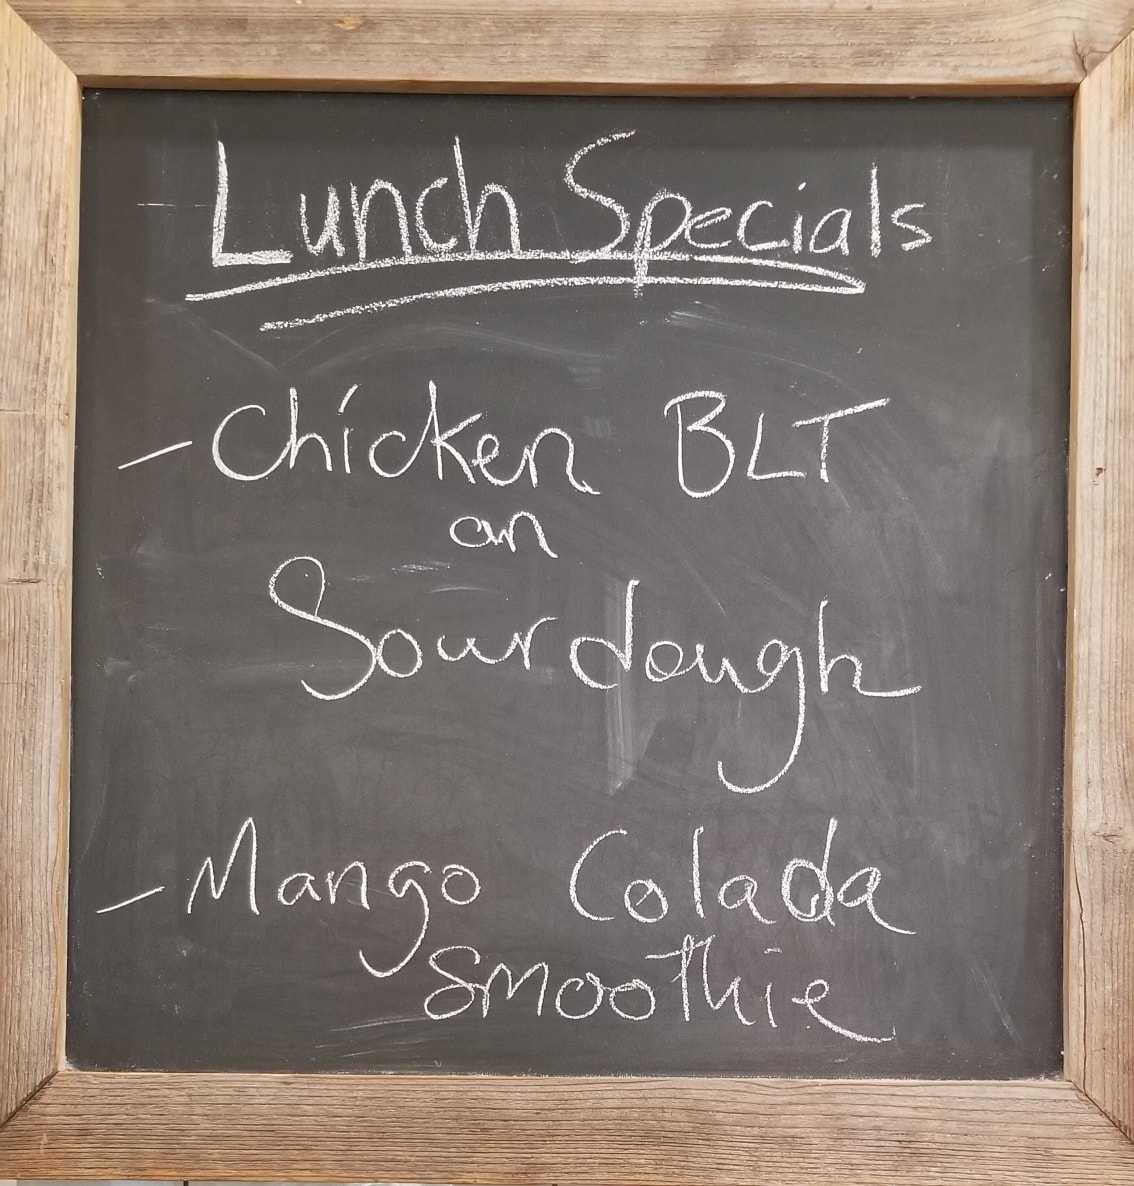 Lunch Specials
- Chicken BLT
on
Sourdough
- Mango Colada
Smoothie